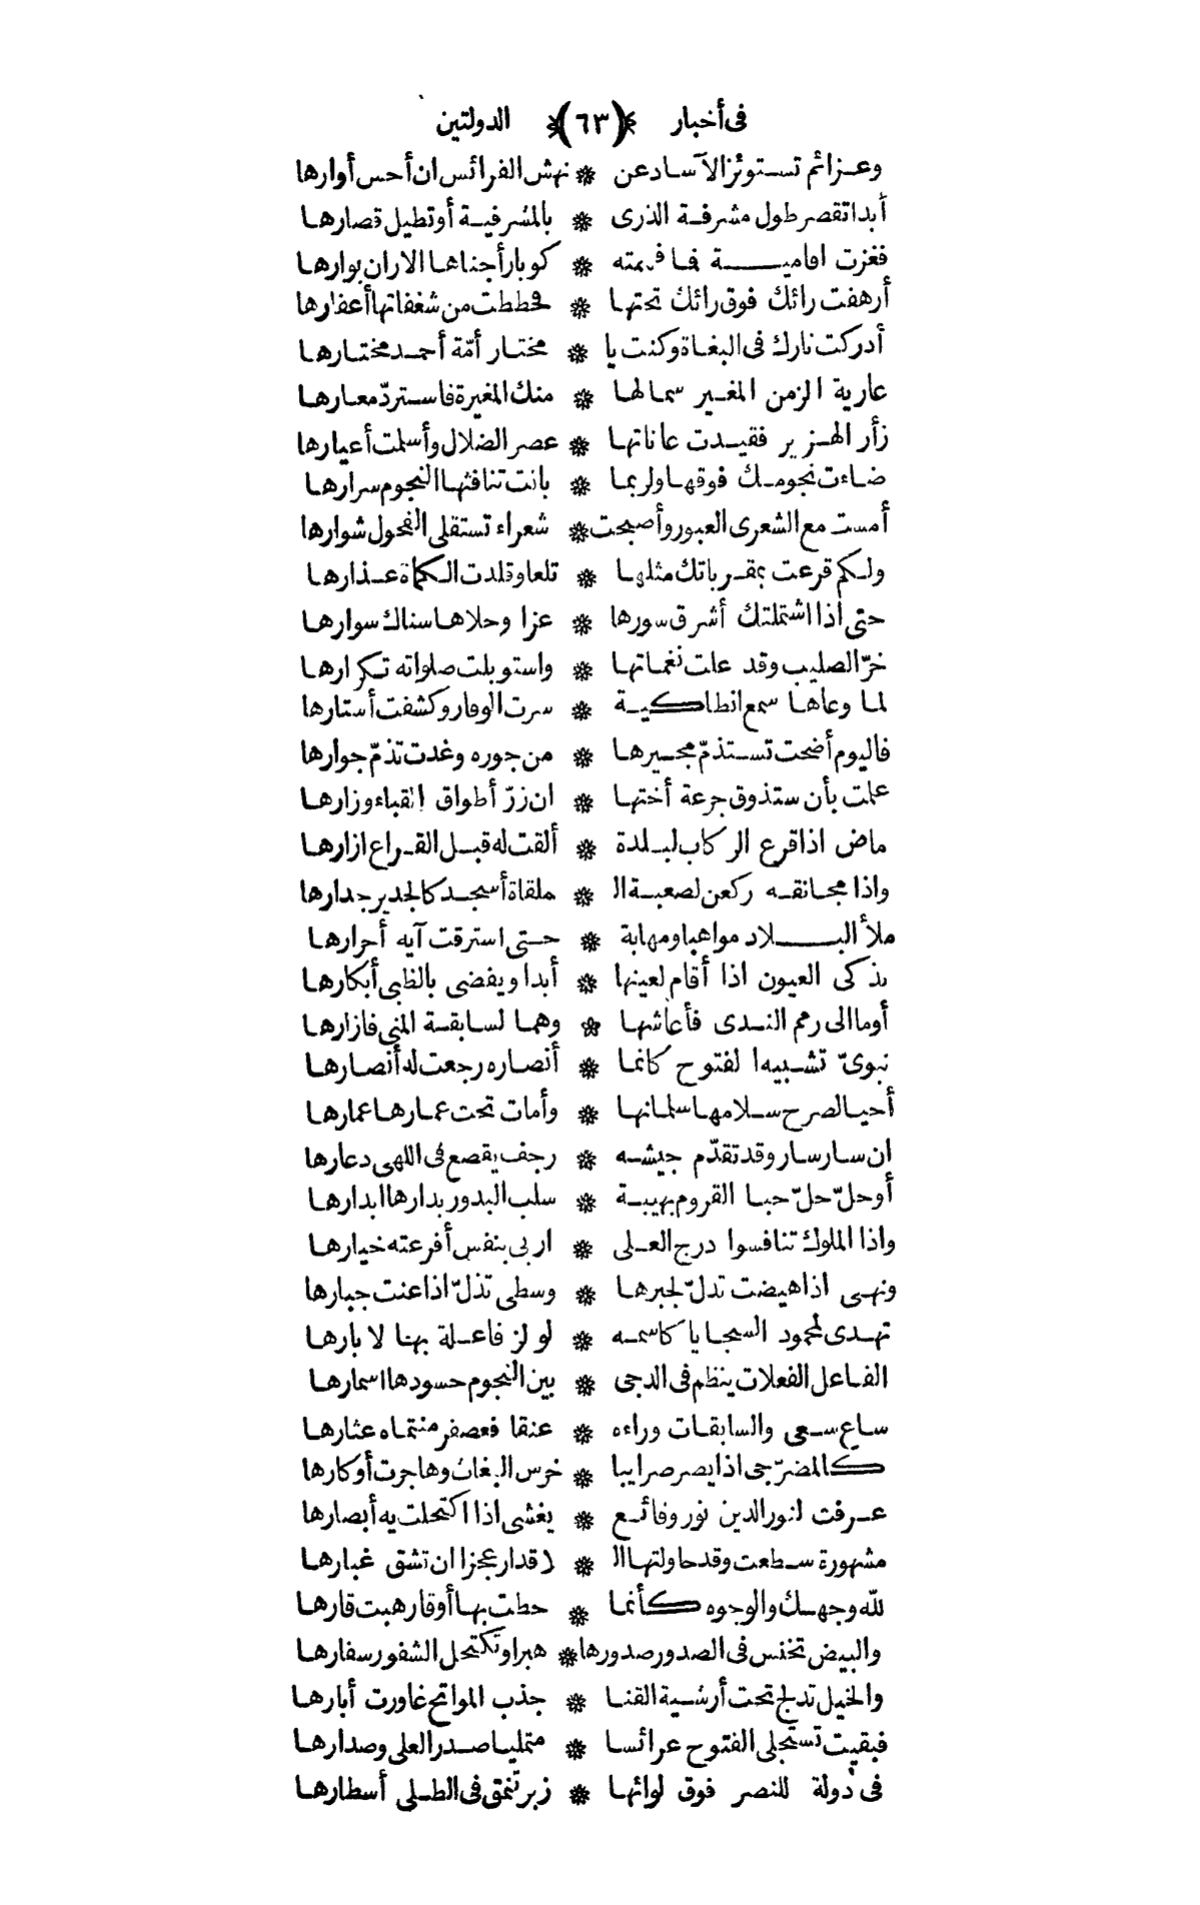 فى أخبار ﴿٦٣﴾ الدولتين
وعزائم تستوئز الآساد عن * نهش الفرائس ان أحس أوارها
أبدا تقصر طول مشرفة الذرى * بالمشرفية أو تطيل قصارها
فغزت افامية فما فهمته * كوبار أجناها الاران بوارها
أرهفت رائك فوق رائك تحتها * فحططت من شغفاتها أعفارها
أدركت نارك فى البغاة وكنت يا * مختار أمّة أحمد مختارها
عارية الزمن المغير سمالها * منك المغيرة فاستردّ معارها
زأر الهزير فقيدت عاناتها * عصر الضلال وأسلمت أعيارها
ضاءت نجومك فوقها ولربما * بانت تنافثها النجوم سرارها
أمست مع الشعرى العبور وأصبحت * شعراء تستقلى الفحول شوارها
ولكم قرعت بمقرباتك مثلها * تلعا وقلدت الكماة عذارها
حتى اذا اشتملتك أشرق سورها * عزا وحلاها سناك سوارها
خرّ الصليب وقد علت نغماتها * واستوبلت صلواته تكرارها
لما وعاها سمع انطاكية * سرت الوقار وكشفت أستارها
فاليوم أضحت تستذمّ مجيرها * من جوره وغدت تذمّ جوارها
علمت بأن ستذوق جرعة أختها * ان زرّ أطواق القباء وزارها
ماض اذا قرع الركاب لبلدة * ألقت له قبل القراع ازارها
واذا مجانقه ركعن لصعبة ال * ملقاة أسجد كالجدير جدارها
ملأ البلاد مواهبا ومهابة * حتى استرقت آيه أحرارها
يذكى العيون اذا أقام لعينها * أبدا ويفضى بالظبى أبكارها
أوما الى رمم الندى فأعاشها * وهما لسابقة المنى فازارها
نبوىّ تشبيه الفتوح كانما * أنصاره رجعت له أنصارها
أحيا لصرح سلامها سلمانها * وأمات تحت عمارها عمارها
ان سار سار وقد تقدّم جيشه * رجف يقصع فى اللهى دعارها
أوحلّ حلّ حبا القروم بهيبة * سلب البدور بدارها ابدارها
واذا الملوك تنافسوا درج العلى * اربى بنفس أفرعته خيارها
ونهى اذا هيضت تدلّ لجبرها * وسطى تذلّ اذا عنت جبارها
تهدى لمحمود السجايا كاسمه * لو لز فاعلة بهنا لا بارها
الفاعل الفعلات ينظم فى الدجى * بين النجوم حسودها اسمارها
ساع سعى والسابقات وراءه * عنقا فعصفر منتماه عثارها
كالمضرّجى اذا يصرصر ايبا * خرس البغاث وهاجرت أوكارها
عرفت لنور الدين نور وقائع * يغشى اذا اكتحلت به أبصارها
مشهورة سطعت وقد حاولتها ال * قدار عجزا ان تشق غبارها
لله وجهك والوجوه كأنما * حطت بها أوقار هبت قارها
والبيض تخنس فى الصدور صدورها * هبرا وتكتحل الشفور سفارها
والخيل تدلج تحت أرشية القنا * جذب المواتح غاورت أبارها
فبقيت تستجلى الفتوح عرائسا * متمليا صدر العلى وصدارها
فى دولة للنصر فوق لوائها * زبر تنمق فى الطلى أسطارها